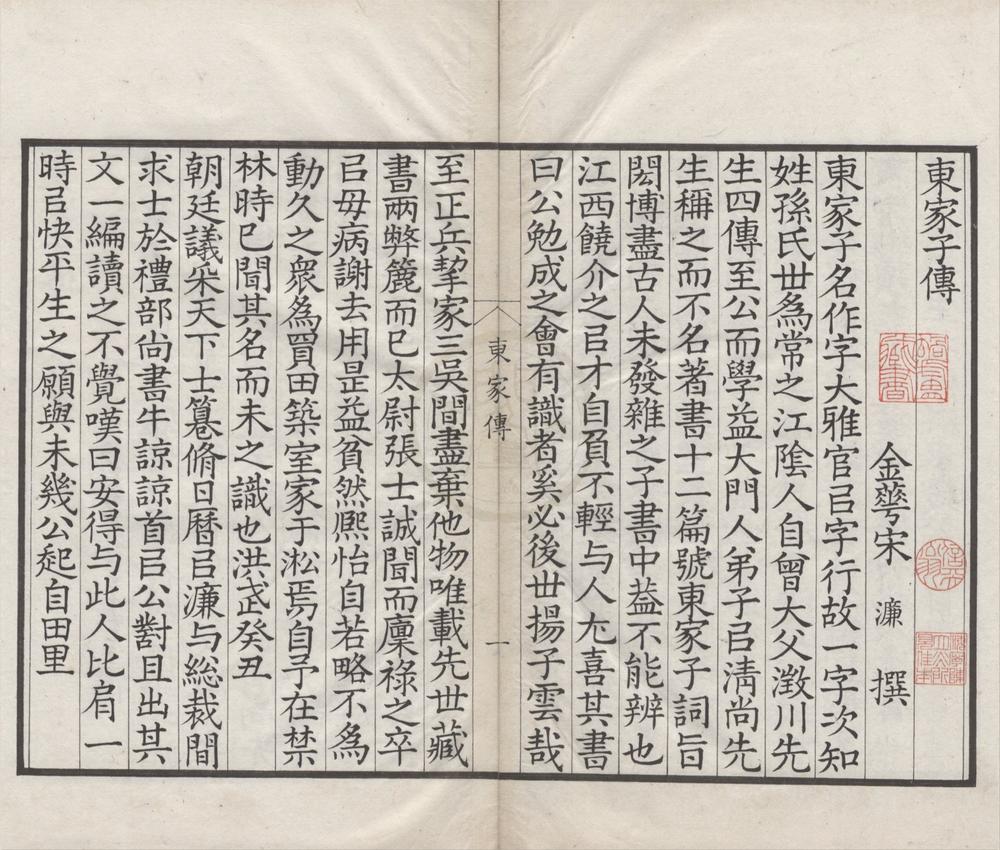 東家子傳
金蕚宋 濂 撰
東家子名作字大雅官㠯字行故一字次知
姓孫氏世為常之江陰人自曾大父澂川先
生四傳至公而學益大門人弟子㠯清尚先
生稱之而不名著書十二篇號東家子詞旨
閎博盡古人未發雜之子書中葢不能辨也
江西饒介之㠯才自負不輕与人尤喜其書
曰公勉成之會有識者奚必後世揚子雲哉
東家傳
一
至正兵挈家三吳間盡棄他物唯載先世藏
書兩弊簏而已太尉張士誠聞而廩祿之卒
㠯母病謝去用是益貧然熙怡自若略不為
動久之眾為買田築室家于淞焉自予在禁
林時已聞其名而未之識也洪武癸丑
朝廷議采天下士篹脩日曆㠯濂与総裁間
求士於禮部尚書牛諒諒首㠯公對且出其
文一編讀之不覺嘆曰安得与此人比肩一
時㠯快平生之願與未幾公起自田里